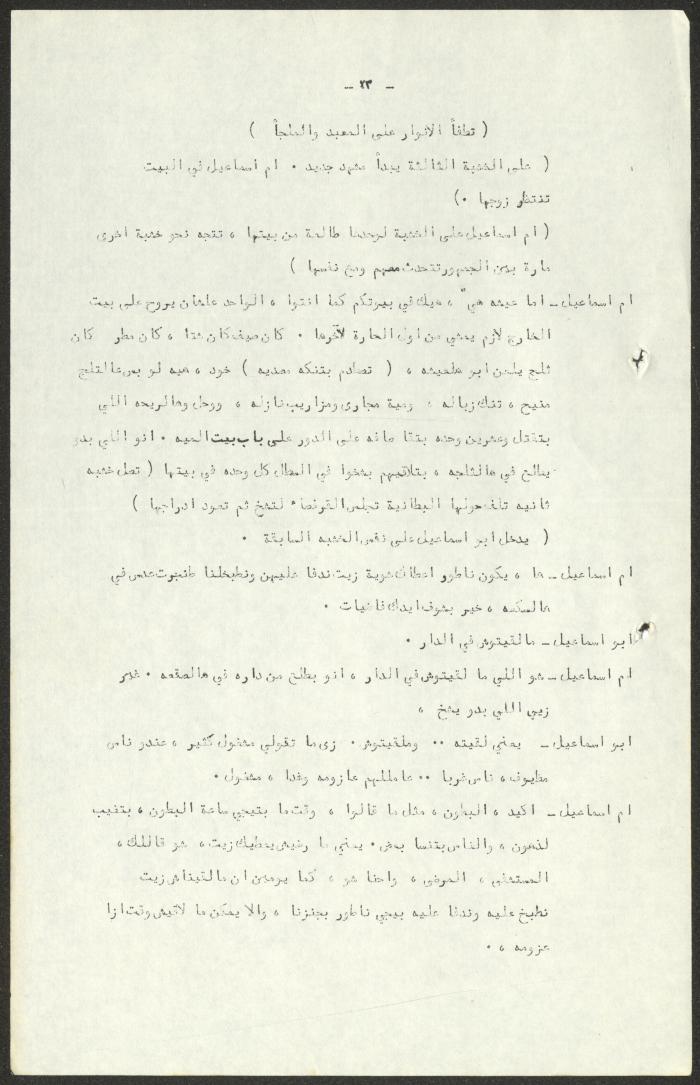 - ٢٣ -
( تطفأ الانوار على المعبد والملجأ )
( على الخشبة الثالثة يبدأ مشهد جديد ٠ ام اسماعيل في البيت
تنتظر زوجها ٠)
( ام اسماعيل على الخشبة لوحدها طالعة من بيتها ، تتجه نحو خشبة اخرى
مارة بين الجمهور تتحدث معهم ومع نفسها )
ام اسماعيل ـ اما عيشه هي ، هيك في بيوتكم كما انتوا ، الواحد علشان يروح على بيت
الخارج لازم يمشي من اول الحارة لآخرها ٠ كان صيف كان شتا ، كان مطر كان
ثلج يلعن ابو هلعيشه ، ( تصادم بتنكه معدنيه ) خود ، هيه لو بس عالثلج
منيح ، تنك زباله ، ومية مجاري ومزاريب نازله ، ووحل وهالريحه اللي
بتقتل وعشرين وحده بتتا على الدور على باب بيت الميه ٠ انو اللي بدو
يطلع في هالثلجه ، بتلاقيهم بشخوا في السطل كل وحده في بيتها ( تصل خشبه
ثانيه تلف حولها البطانية تجلس القرفصاء لتشخ ثم تعود ادراجها )
( يدخل ابو اسماعيل على نفس الخشبه السابقة ٠
ام اسماعيل ـ ها ، يكون ناطور اعطاك شوية زيت ندفا عليهن ونطبخلنا طنجرت عدس في
هالسكعه ، خير بشوف ايدك فاضيات ٠
ابو اسماعيل ـ مالقيتوش في الدار ٠
ام اسماعيل ـ شو اللي ما لقيتوش في الدار ، انو بطلع من داره في هالصقعه ٠ غير
زيي اللي بدو يشخ ،
ابو اسماعيل ـ يعني لقيته ٠٠ وملقيتوش ٠ زي ما تقولي مشغول كثير ، عندو ناس
ضيوف ، ناس غربا ٠٠ عاملهم عازومه وغدا ، مشغول ٠
ام اسماعيل ـ اكيد ، البطون ، مثل ما قالوا ، وقت ما بتيجي ساعة البطون ، بتغيب
لذهون ، والناس بتنسا بعض ٠ يعني ما رضيش يعطيك زيت ، شو قاللك ،
المستشفى ، المرضى ، واحنا شو ، كما يومين ان مالقيناش زيت
نطبخ عليه وندفا عليه بيجي ناطور بجنزنا ، والا يمكن ما لاقيش وقت ازا
عزومه ، ٠